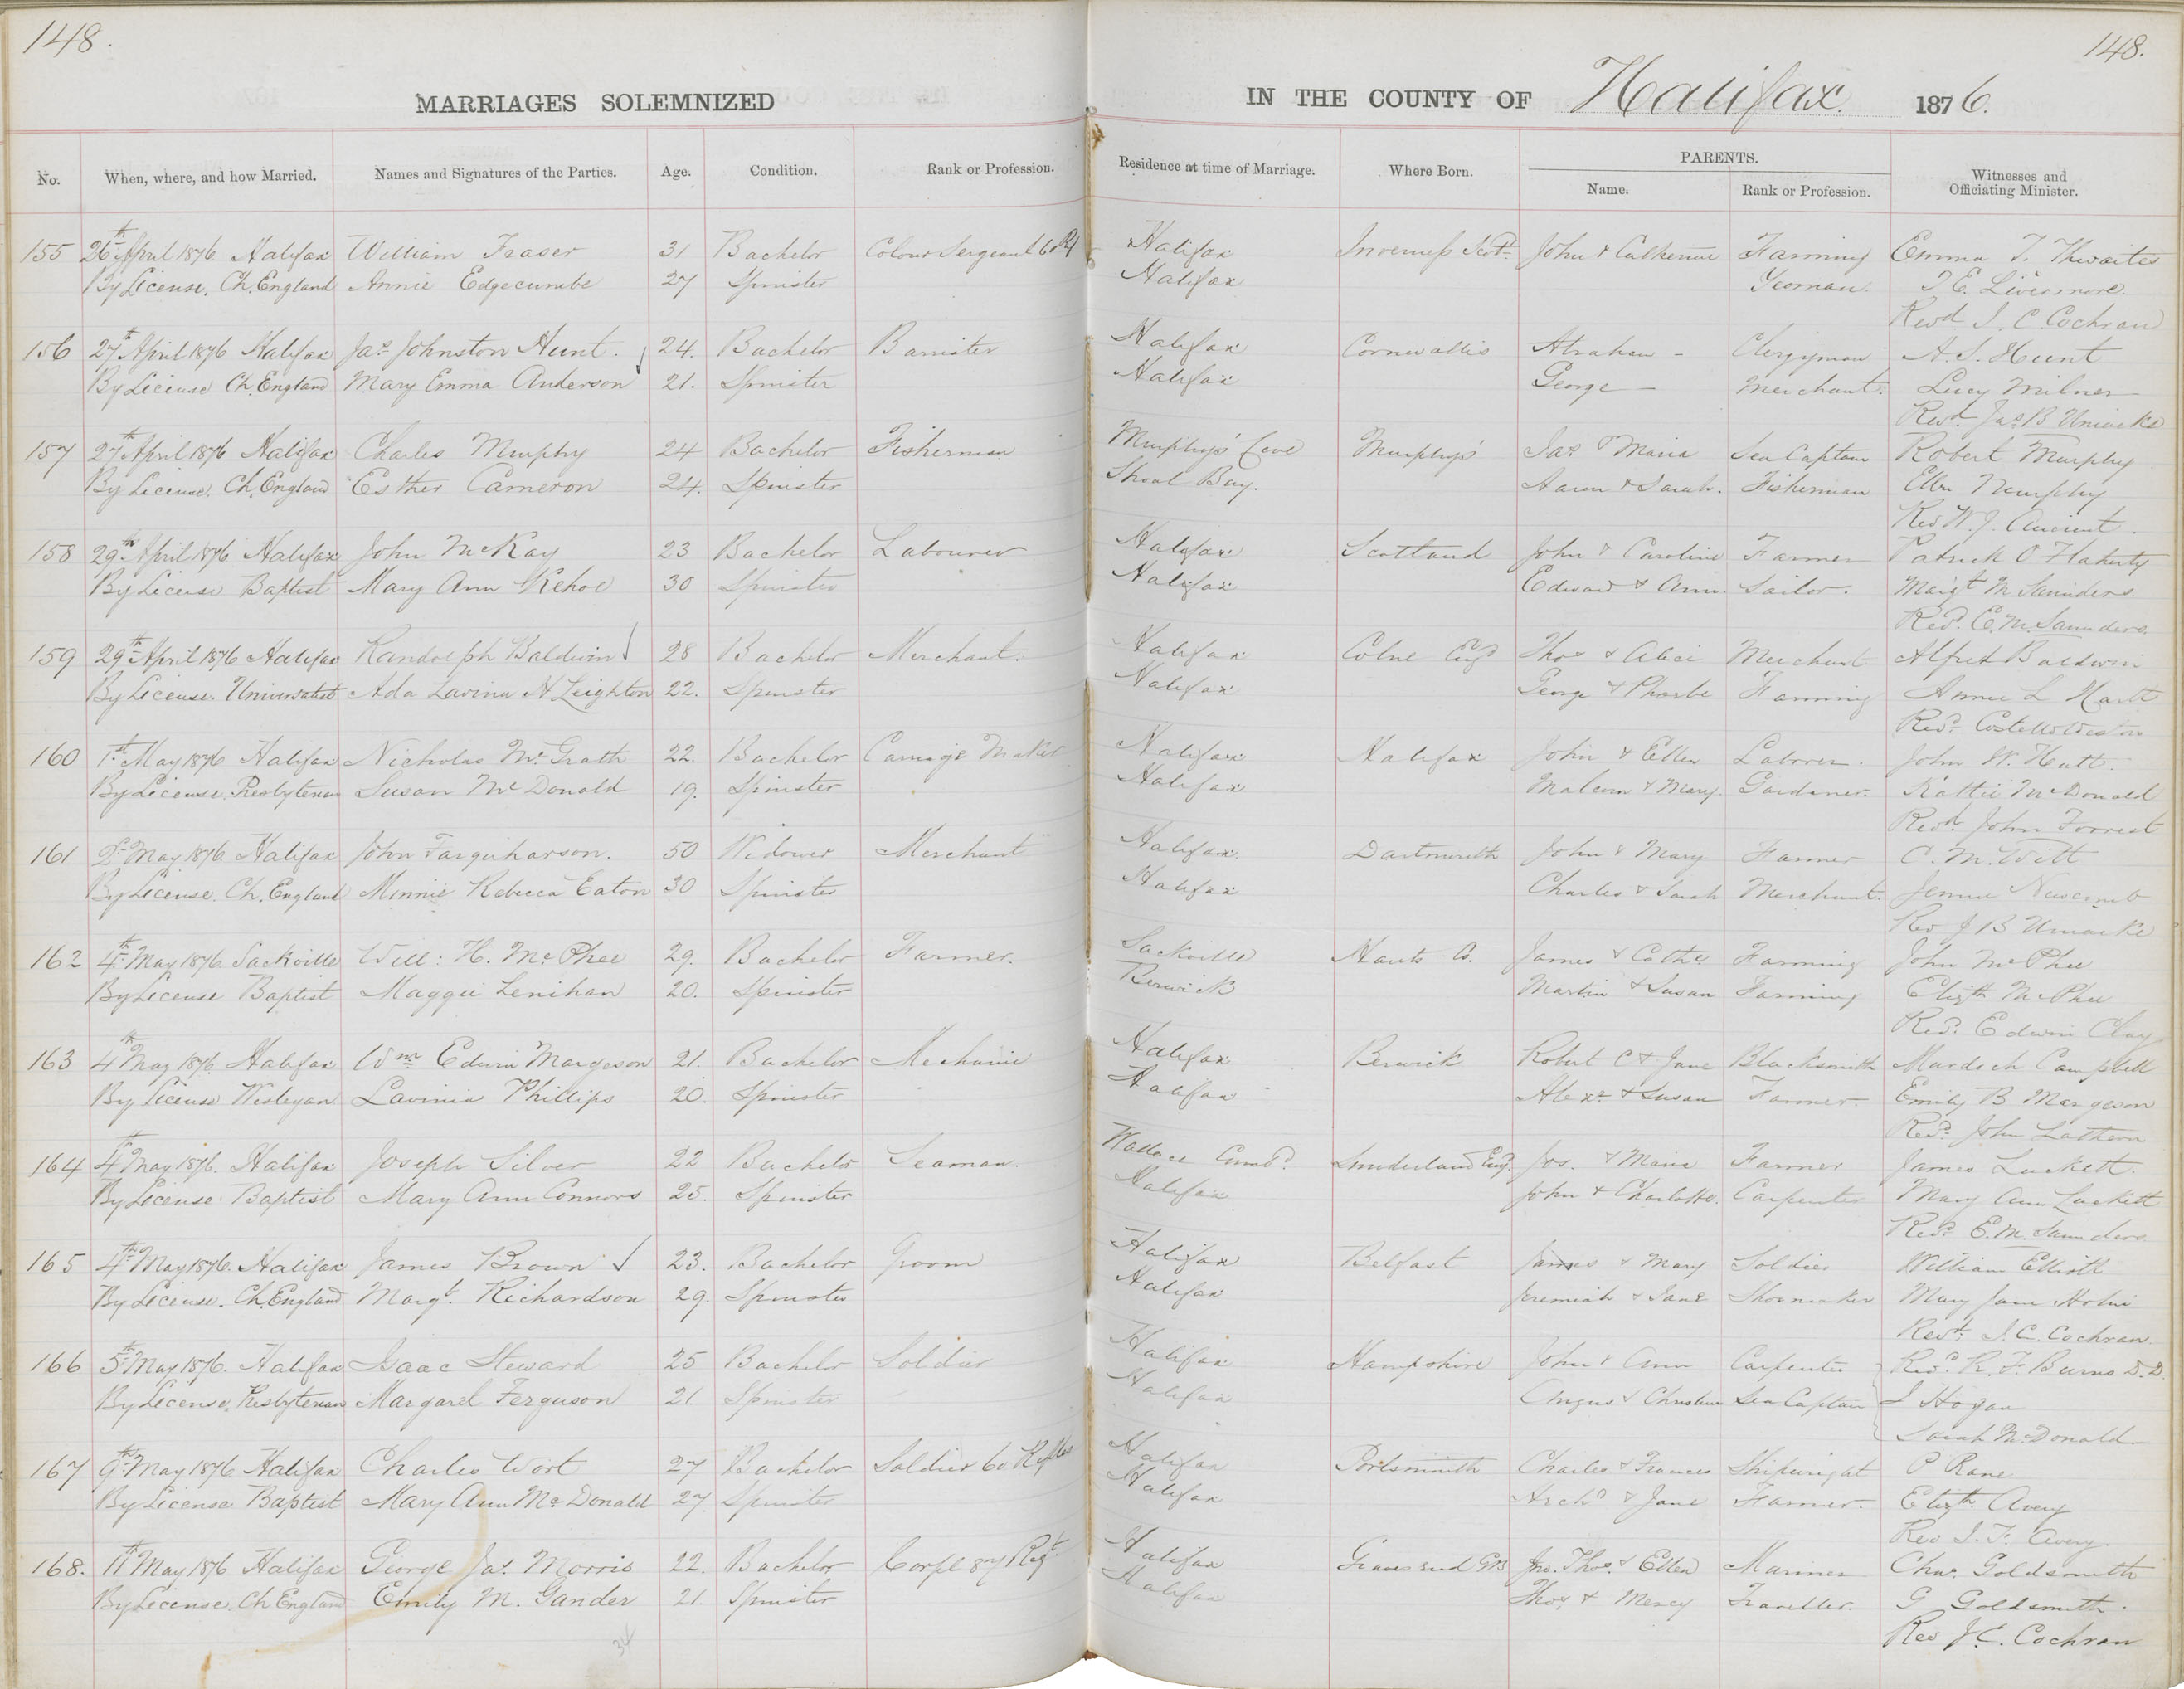 148.
148.
MARRIAGES SOLEMNIZED
IN THE COUNTY OF Halifax. 1876.
No. When, where, and how Married. Names and Signatures of the Parties. Age. Condition. Rank or Profession. Residence at time of Marriage. Where Born. PARENTS. Name. Rank or Profession. Witnesses and Officiating Minister.
155 26th April 1876 Halifax William Fraser 31 Bachelor Colour Sergeant 60 Halifax Inverness Scot. John & Catherine Farming Emma T. Thwaites
By License. Ch. England Annie Edgecumbe 27 Spinster Halifax Yeoman. T. E. Livermore.
Revd J. C. Cochran
156 27th April 1876 Halifax Jas Johnston Hunt. 24. Bachelor Barrister Halifax Cornwallis Abraham - Clergyman A. S. Hunt
By License Ch. England Mary Emma Anderson 21. Spinster Halifax George - Merchant. Lucy Milner
Revd Jas B Uniacke
157 27th April 1876 Halifax Charles Murphy 24 Bachelor Fisherman Murphys' Cove Murphys' Jas & Maria Sea Captain Robert Murphy
By License. Ch. England Esther Cameron 24. Spinster Shoal Bay. Aaron & Sarah. Fisherman Ellen Murphy
Rev W. J. Ancient.
158 29th April 1876 Halifax John McKay 23 Bachelor Labourer Halifax Scotland John & Caroline Farmer Patrick O'Flaherty
By License Baptist Mary Ann Kehoe 30 Spinster Halifax Edward & Ann. Sailor. Margt M Saunders
Revd. E. M. Saunders
159 29th April 1876 Halifax Randolph Baldwin 28 Bachelor Merchant. Halifax Colne Engd Thos & Alice Merchant Alfred Baldwin
By License. Universalist Ada Lavina A Leighton 22. Spinster Halifax George & Phoebe Farming Annie L
Revd. Costello Weston
160 1st May 1876 Halifax Nicholas McGrath 22. Bachelor Carriage Maker Halifax Halifax John & Ellen Laborer. John W. Hutt.
By License. Presbyterian Susan McDonald 19. Spinster Halifax Malcom & Mary. Gardener. Kattie McDonald
Revd. John Forrest
161 2d May 1876 Halifax John Farquharson. 50 Widower Merchant Halifax Dartmouth John & Mary Farmer C. M. Witt
By License. Ch. England Minnie Rebecca Eaton 30 Spinster Halifax Charles & Sarah Merchant. Jennie Newcomb
Rev J B Uniacke
162 4th May 1876 Sackville Will: H. McPhee 29. Bachelor Farmer. Sackville Hants Co. James & Cathe Farming John McPhee
By License Baptist Maggie Lenihan 20. Spinster Berwick Martin & Susan Farming Elizth McPhee
Revd. Edwin Clay
163 4th May 1876 Halifax Wm Edwin Margeson 21. Bachelor Mechanic Halifax Berwick Robert C & Jane Blacksmith Murdoch Campbell
By License Wesleyan Lavinia Phillips 20. Spinster Halifax Alexr & Susan Farmer. Emily B Margeson
Revd. John Lathern
164 4th May 1876. Halifax Joseph Silver 22 Bachelor Seaman. Wallace Cumbd. Sunderland Engd. Jos. & Maria Farmer James Luckett.
By License Baptist Mary Ann Connors 25. Spinster Halifax John & Charlotte. Carpenter Mary Ann Luckett
Revd. E. M. Saunders
165 4th May 1876. Halifax James Brown 23. Bachelor Groom Halifax Belfast James & Mary Soldier William Elliott
By License. Ch. England Margt. Richardson 29. Spinster Halifax Jeremiah & Jane Shoemaker Mary Jane
Revd. J. C. Cochran
166 5th May 1876. Halifax Isaac Steward 25 Bachelor Soldier Halifax Hampshire John & Ann Carpenter Revd. R. F. Burns D.D.
By License. Presbyterian Margaret Ferguson 21 Spinster Halifax Angus & Christina Sea Captain J Hogan
Sarah McDonald
167 9th May 1876 Halifax Charles Wort 27 Bachelor Soldier 60 Rifles Halifax Portsmouth Charles & Frances Shipwright P Rane
By License Baptist Mary Ann McDonald 27. Spinster Halifax Archd & Jane Farmer. Elizth Avery
Rev J. F. Avery.
168. 11th May 1876 Halifax George Jas. Morris 22. Bachelor Corpl 87 Regt. Halifax Gravesend GB Jno. Thos. & Ellen Mariner Chas. Goldsmith
By License. Ch England Emily M. Gander 21 Spinster Halifax Thos & Mercy Traveller. G Goldsmith.
Rev J. C. Cochran
34